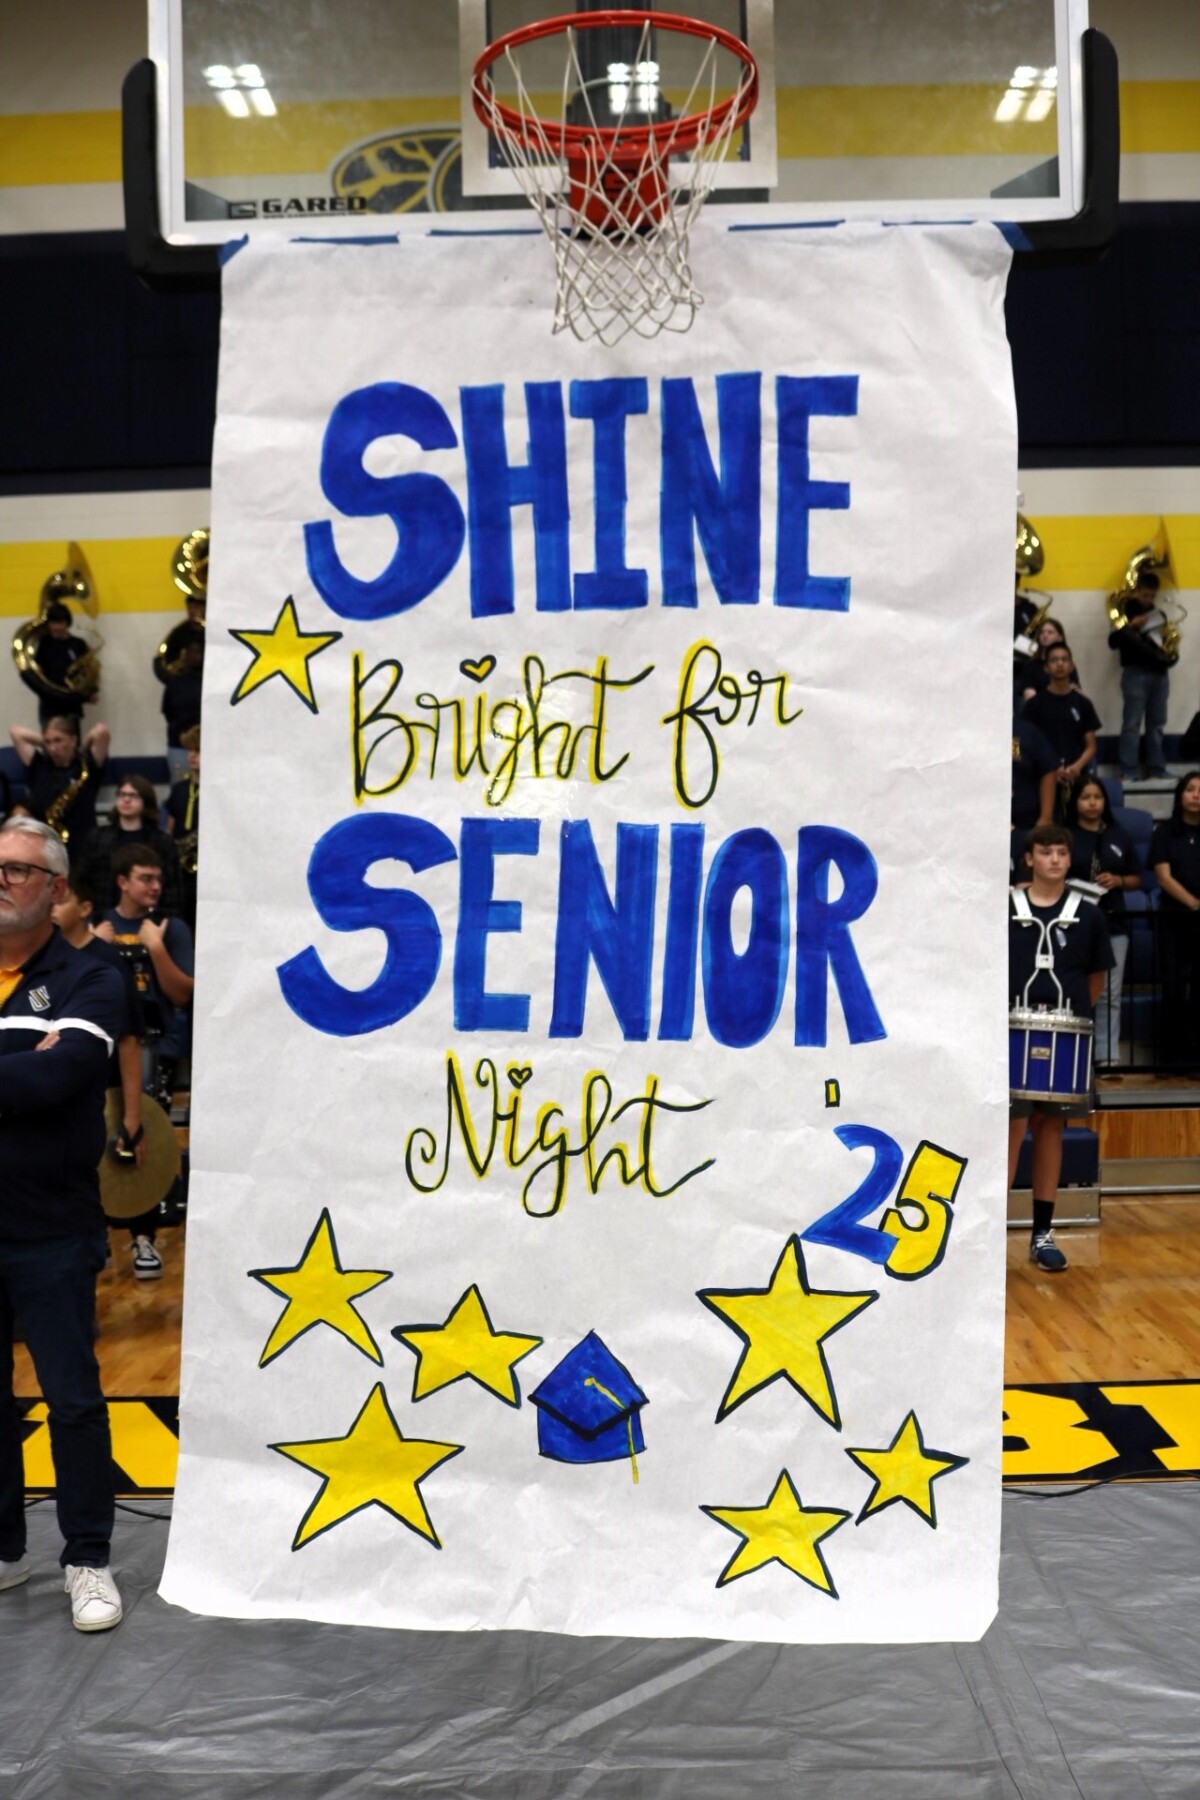 GARED
SHINE
Bright for
SENIOR
Night
'25